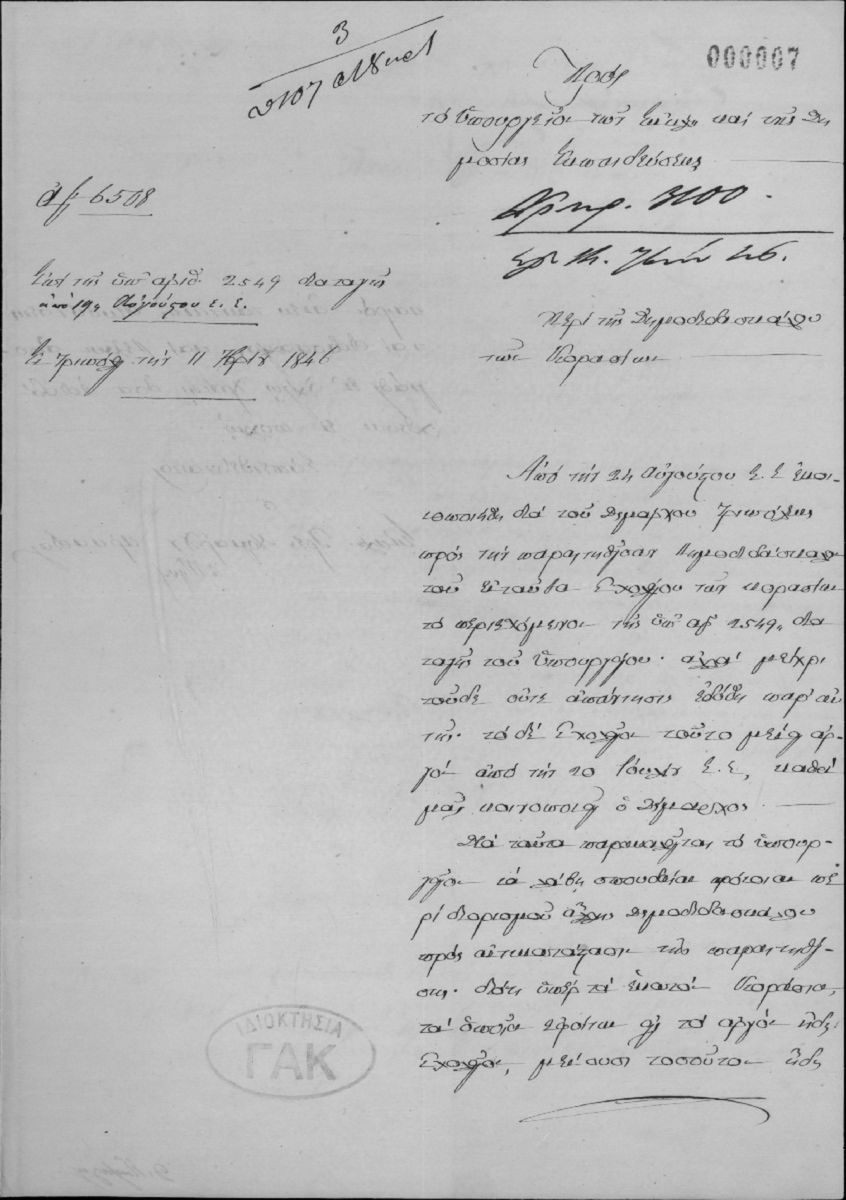 3
000007
Πρὸς
τὸ Ὑπουργεῖον τῶν Ἐκκλ. καὶ τῆς Δη
μοσίας Ἐκπαιδεύσεως
ἀρ. 6508
Ἀρ. πρ. 3100.
Ἐπὶ τῆς ὑπ' ἀριθ. 2549 διαταγῆς
ἀπὸ 19ης Αὐγούστου ἐ. ἔ.
Ἐν Τριπόλει τὴν 11 7βρίου 1846
Περὶ τῆς Δημοδιδασκάλου
τῶν Κορασίων
Ἀπὸ τὴν 24 Αὐγούστου ἐ. ἔ. ἐκοι-
νοποιήθη διὰ τοῦ Δημάρχου Τριπόλεως
πρὸς τὴν παραιτηθεῖσαν Δημοδιδάσκαλον
τοῦ ἐνταῦθα Σχολείου τῶν κορασίων
τὸ περιεχόμενον τῆς ὑπ' ἀρ. 2549 δια
ταγῆς τοῦ Ὑπουργείου. ἀλλὰ μέχρι
τοῦδε οὔτε ἀπάντησις ἐδόθη παρ' αὐ
τῆς. τὸ δὲ Σχολεῖον τοῦτο μένει ἀρ-
γὸν ἀπὸ τὴν 20 Ἰουλίου ἐ. ἔ., καθὰ
μᾶς κοινοποιεῖ ὁ Δήμαρχος.
Διὰ ταῦτα παρακαλεῖται τὸ ὑπουρ-
γεῖον νὰ λάβῃ σπουδαίαν πρόνοιαν πε
ρὶ διορισμοῦ ἄλλης Δημοδιδασκάλου
πρὸς ἀντικατάστασιν τῆς παραιτηθεί-
σης. διότι ὑπὲρ τὰ ἑκατὸν Κοράσια,
τὰ ὁποῖα ἐφοίτων εἰς τὸ ἀργὸν ἤδη
Σχολεῖον, μένουσι τοσοῦτον ἤδη
ΙΔΙΟΚΤΗΣΙΑ
ΓΑΚ